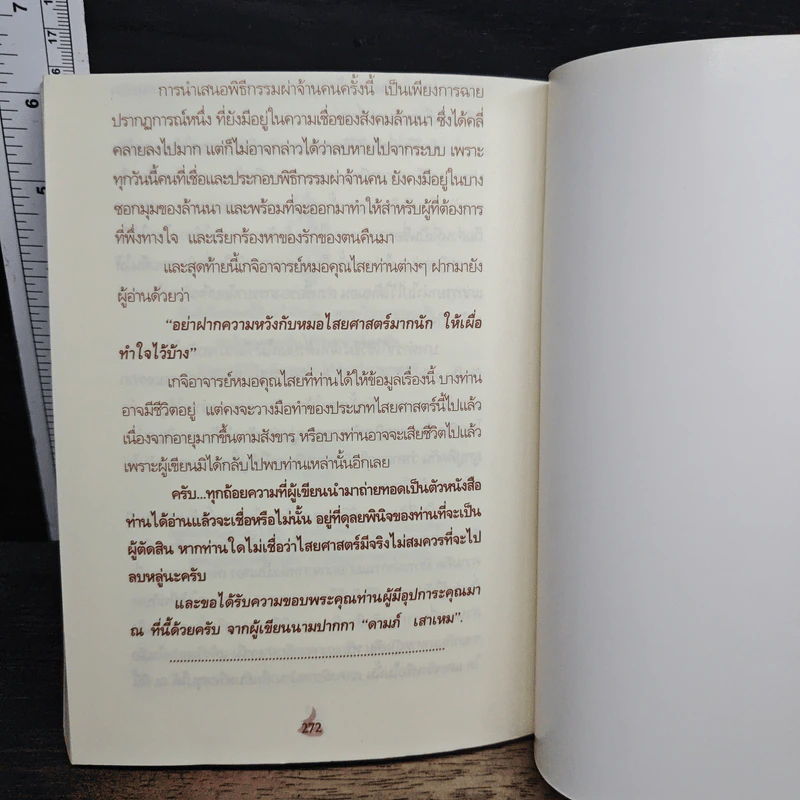 7
6
5
17
การนำเสนอพิธีกรรมผ่าจ้านคนครั้งนี้ เป็นเพียงการฉาย
ปรากฏการณ์หนึ่ง ที่ยังมีอยู่ในความเชื่อของสังคมล้านนา ซึ่งได้คลี่
คลายลงไปมาก แต่ก็ไม่อาจกล่าวได้ว่าลบหายไปจากระบบ เพราะ
ทุกวันนี้คนที่เชื่อและประกอบพิธีกรรมผ่าจ้านคน ยังคงมีอยู่ในบาง
ซอกมุมของล้านนา และพร้อมที่จะออกมาทำให้สำหรับผู้ที่ต้องการ
ที่พึ่งทางใจ และเรียกร้องหาของรักของตนคืนมา
และสุดท้ายนี้เกจิอาจารย์หมอคุณไสยท่านต่างๆ ฝากมายัง
ผู้อ่านด้วยว่า
“อย่าฝากความหวังกับหมอไสยศาสตร์มากนัก ให้เผื่อ
ทำใจไว้บ้าง”
เกจิอาจารย์หมอคุณไสยที่ท่านได้ให้ข้อมูลเรื่องนี้ บางท่าน
อาจมีชีวิตอยู่ แต่คงจะวางมือทำของประเภทไสยศาสตร์นี้ไปแล้ว
เนื่องจากอายุมากขึ้นตามสังขาร หรือบางท่านอาจจะเสียชีวิตไปแล้ว
เพราะผู้เขียนมิได้กลับไปพบท่านเหล่านั้นอีกเลย
ครับ...ทุกถ้อยความที่ผู้เขียนนำมาถ่ายทอดเป็นตัวหนังสือ
ท่านได้อ่านแล้วจะเชื่อหรือไม่นั้น อยู่ที่ดุลยพินิจของท่านที่จะเป็น
ผู้ตัดสิน หากท่านใดไม่เชื่อว่าไสยศาสตร์มีจริงไม่สมควรที่จะไป
ลบหลู่นะครับ
และขอได้รับความขอบพระคุณท่านผู้มีอุปการะคุณมา
ณ ที่นี้ด้วยครับ จากผู้เขียนนามปากกา “ดามภ์ เสาเหม”.
272